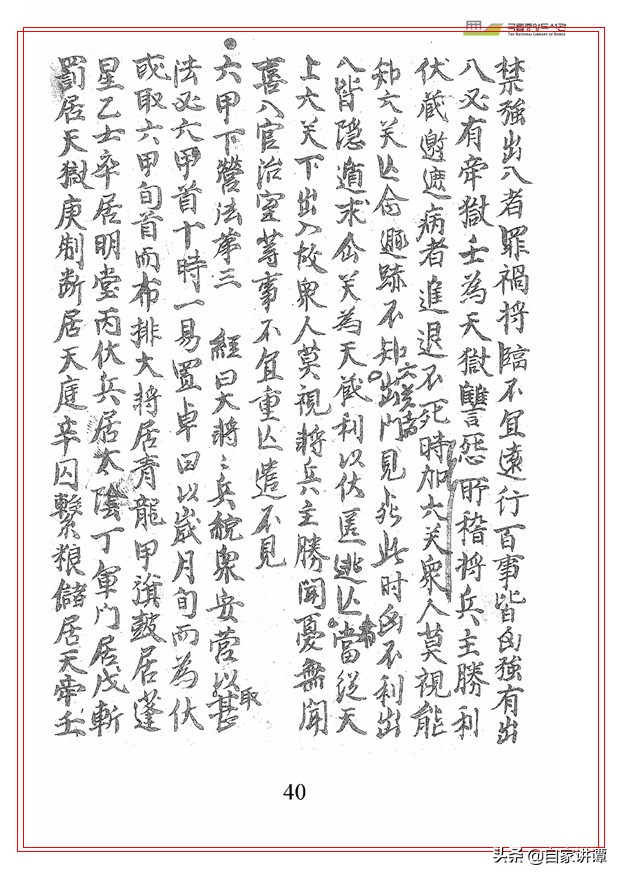 국립중앙도서관
THE NATIONAL LIBRARY OF KOREA
禁強出入者罪禍將臨不宜遠行百事皆凶強有出
入又有牢獄壬為天獄讐惡所稽將兵主勝利
伏藏邀遮病者進退不死時加六癸眾人莫視能
知六癸亾命遯跡不知出門見死此时凶不利出
入皆隱遁求仚癸為天藏利以伏匿逃亾當從天
上六癸下出入故眾人莫視將兵主勝聞憂無聞
喜入官治室等事不宜重亾遣不見
六甲下營法苐三 經曰大將〻兵統眾安营以甚取
法必六甲首十時一易置卓曰以歲月旬而為伏
或取六甲旬首而布排大將居青龍甲旗鼓居蓬
星乙士卒居明堂丙伏兵居太陰丁軍門居戊斬
罰居天獄庚制断居天庭辛囚繫粮儲居天牢壬
40
头条 @自家讲谭